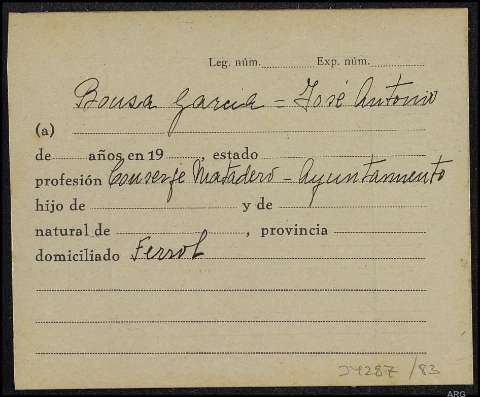 Leg. núm. Exp. núm.
Bousa Garcia = José Antonio
(a)
de años, en 19 , estado
profesión Conserje Matadero - Ayuntamiento
hijo de y de
natural de , provincia
domiciliado Ferrol
24287/83
ARG